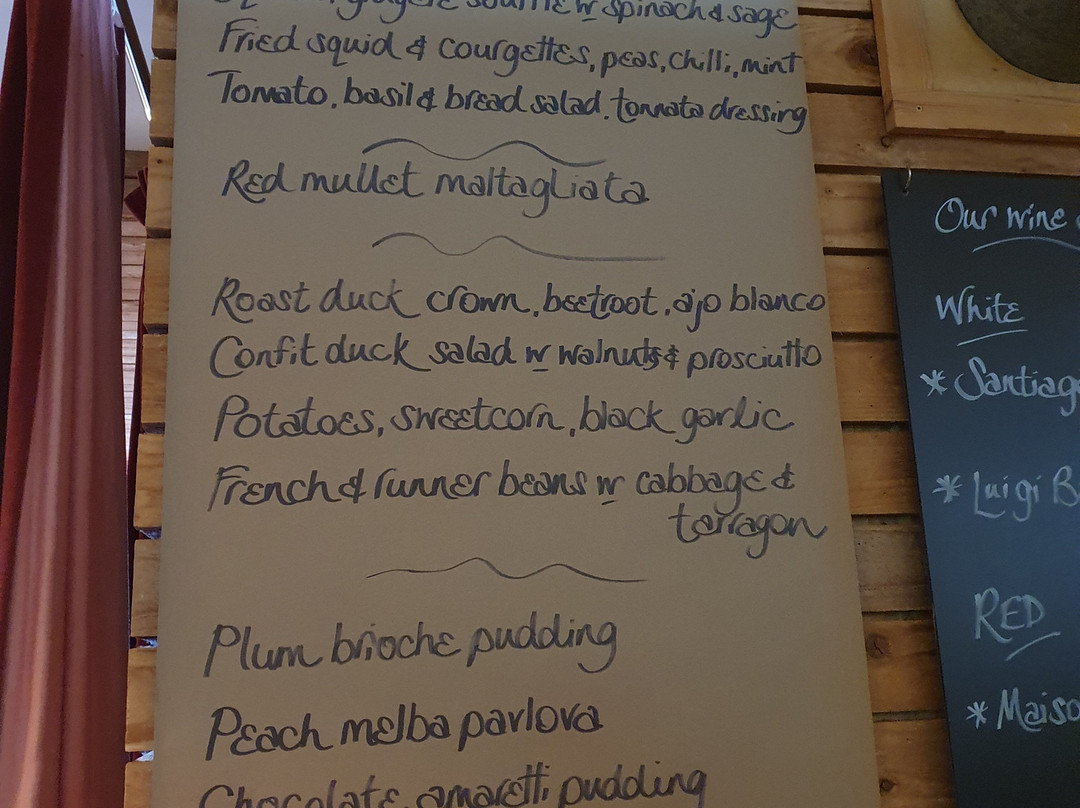 soufflé w spinach & sage
Fried squid & courgettes, peas, chilli, mint
Tomato, basil & bread salad, tonnato dressing
Red mullet maltagliata
Roast duck crown, beetroot, ajo blanco
Confit duck salad w walnuts & prosciutto
Potatoes, sweetcorn, black garlic
French & runner beans w cabbage &
tarragon
Plum brioche pudding
Peach melba pavlova
Chocolate, amaretti pudding
Our wine
White
* Santiag
* Luigi B
RED
* Maiso